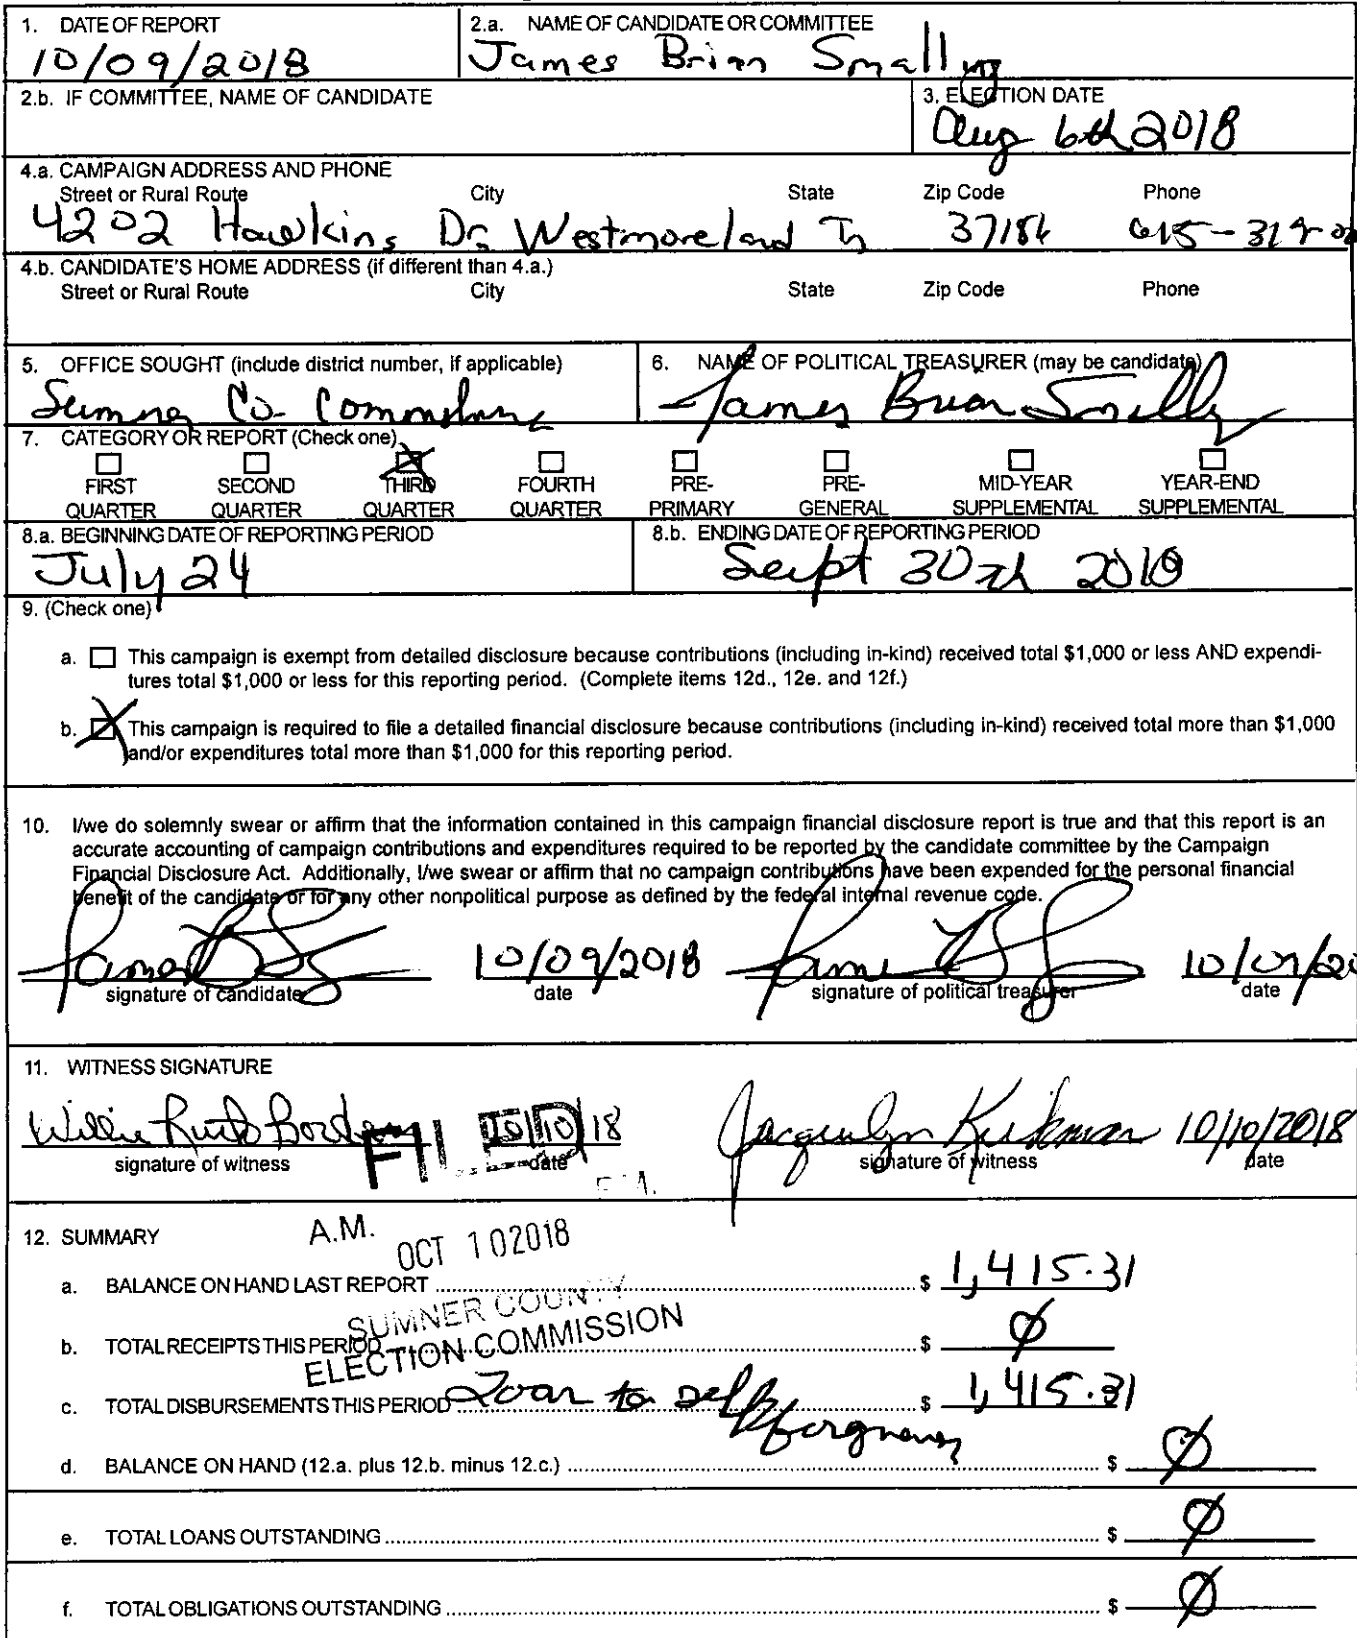 1. DATE OF REPORT
10/09/2018
2.a. NAME OF CANDIDATE OR COMMITTEE
James Brian Smalling
2.b. IF COMMITTEE, NAME OF CANDIDATE
3. ELECTION DATE
Aug 6th 2018
4.a. CAMPAIGN ADDRESS AND PHONE
Street or Rural Route City State Zip Code Phone
4202 Hawkins Dr Westmoreland Tn 37186 615-319-
4.b. CANDIDATE'S HOME ADDRESS (if different than 4.a.)
Street or Rural Route City State Zip Code Phone
5. OFFICE SOUGHT (include district number, if applicable)
Sumner Co
6. NAME OF POLITICAL TREASURER (may be candidate)
James Brian Smalling
7. CATEGORY OR REPORT (Check one)
FIRST QUARTER
SECOND QUARTER
THIRD QUARTER
FOURTH QUARTER
PRE-PRIMARY
PRE-GENERAL
MID-YEAR SUPPLEMENTAL
YEAR-END SUPPLEMENTAL
8.a. BEGINNING DATE OF REPORTING PERIOD
July 24
8.b. ENDING DATE OF REPORTING PERIOD
Sept 30th 2018
9. (Check one)
a. This campaign is exempt from detailed disclosure because contributions (including in-kind) received total $1,000 or less AND expendi-
tures total $1,000 or less for this reporting period. (Complete items 12d., 12e. and 12f.)
b. This campaign is required to file a detailed financial disclosure because contributions (including in-kind) received total more than $1,000
and/or expenditures total more than $1,000 for this reporting period.
10. I/we do solemnly swear or affirm that the information contained in this campaign financial disclosure report is true and that this report is an
accurate accounting of campaign contributions and expenditures required to be reported by the candidate committee by the Campaign
Financial Disclosure Act. Additionally, I/we swear or affirm that no campaign contributions have been expended for the personal financial
benefit of the candidate or for any other nonpolitical purpose as defined by the federal internal revenue code.
James B S 10/09/2018 James B S 10/09/20
signature of candidate date signature of political treasurer date
11. WITNESS SIGNATURE
Willie Ruth Borders 10/10/18 Jacquelyn Kirkman 10/10/2018
signature of witness date signature of witness date
FILED
A.M.
OCT 10 2018
SUMNER COUNTY
ELECTION COMMISSION
12. SUMMARY
a. BALANCE ON HAND LAST REPORT $ 1,415.31
b. TOTAL RECEIPTS THIS PERIOD $ Ø
c. TOTAL DISBURSEMENTS THIS PERIOD Loan to self $ 1,415.31
d. BALANCE ON HAND (12.a. plus 12.b. minus 12.c.) $ Ø
e. TOTAL LOANS OUTSTANDING $ Ø
f. TOTAL OBLIGATIONS OUTSTANDING $ Ø